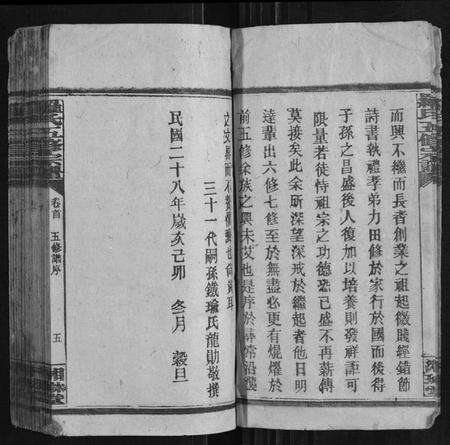 而興不機而長者創業之祖起微賤經錯節
詩書執禮孝弟力田修於家行於國而後得
子孫之昌盛後人復加以培養則發祥詎可
限量若徒恃祖宗之功德恐已盛不再薪傳
莫接矣此余所深望深戒於繼起者他日明
達輩出六修七修至於無盡必更有焜燿於
前五修余族之興未艾也是序於
三十一代嗣孫鐵瑜氏龍勛敬撰
民國二十八年歲亥己卯 冬月 穀旦
羅氏五修宗譜
卷首 五修譜序
五